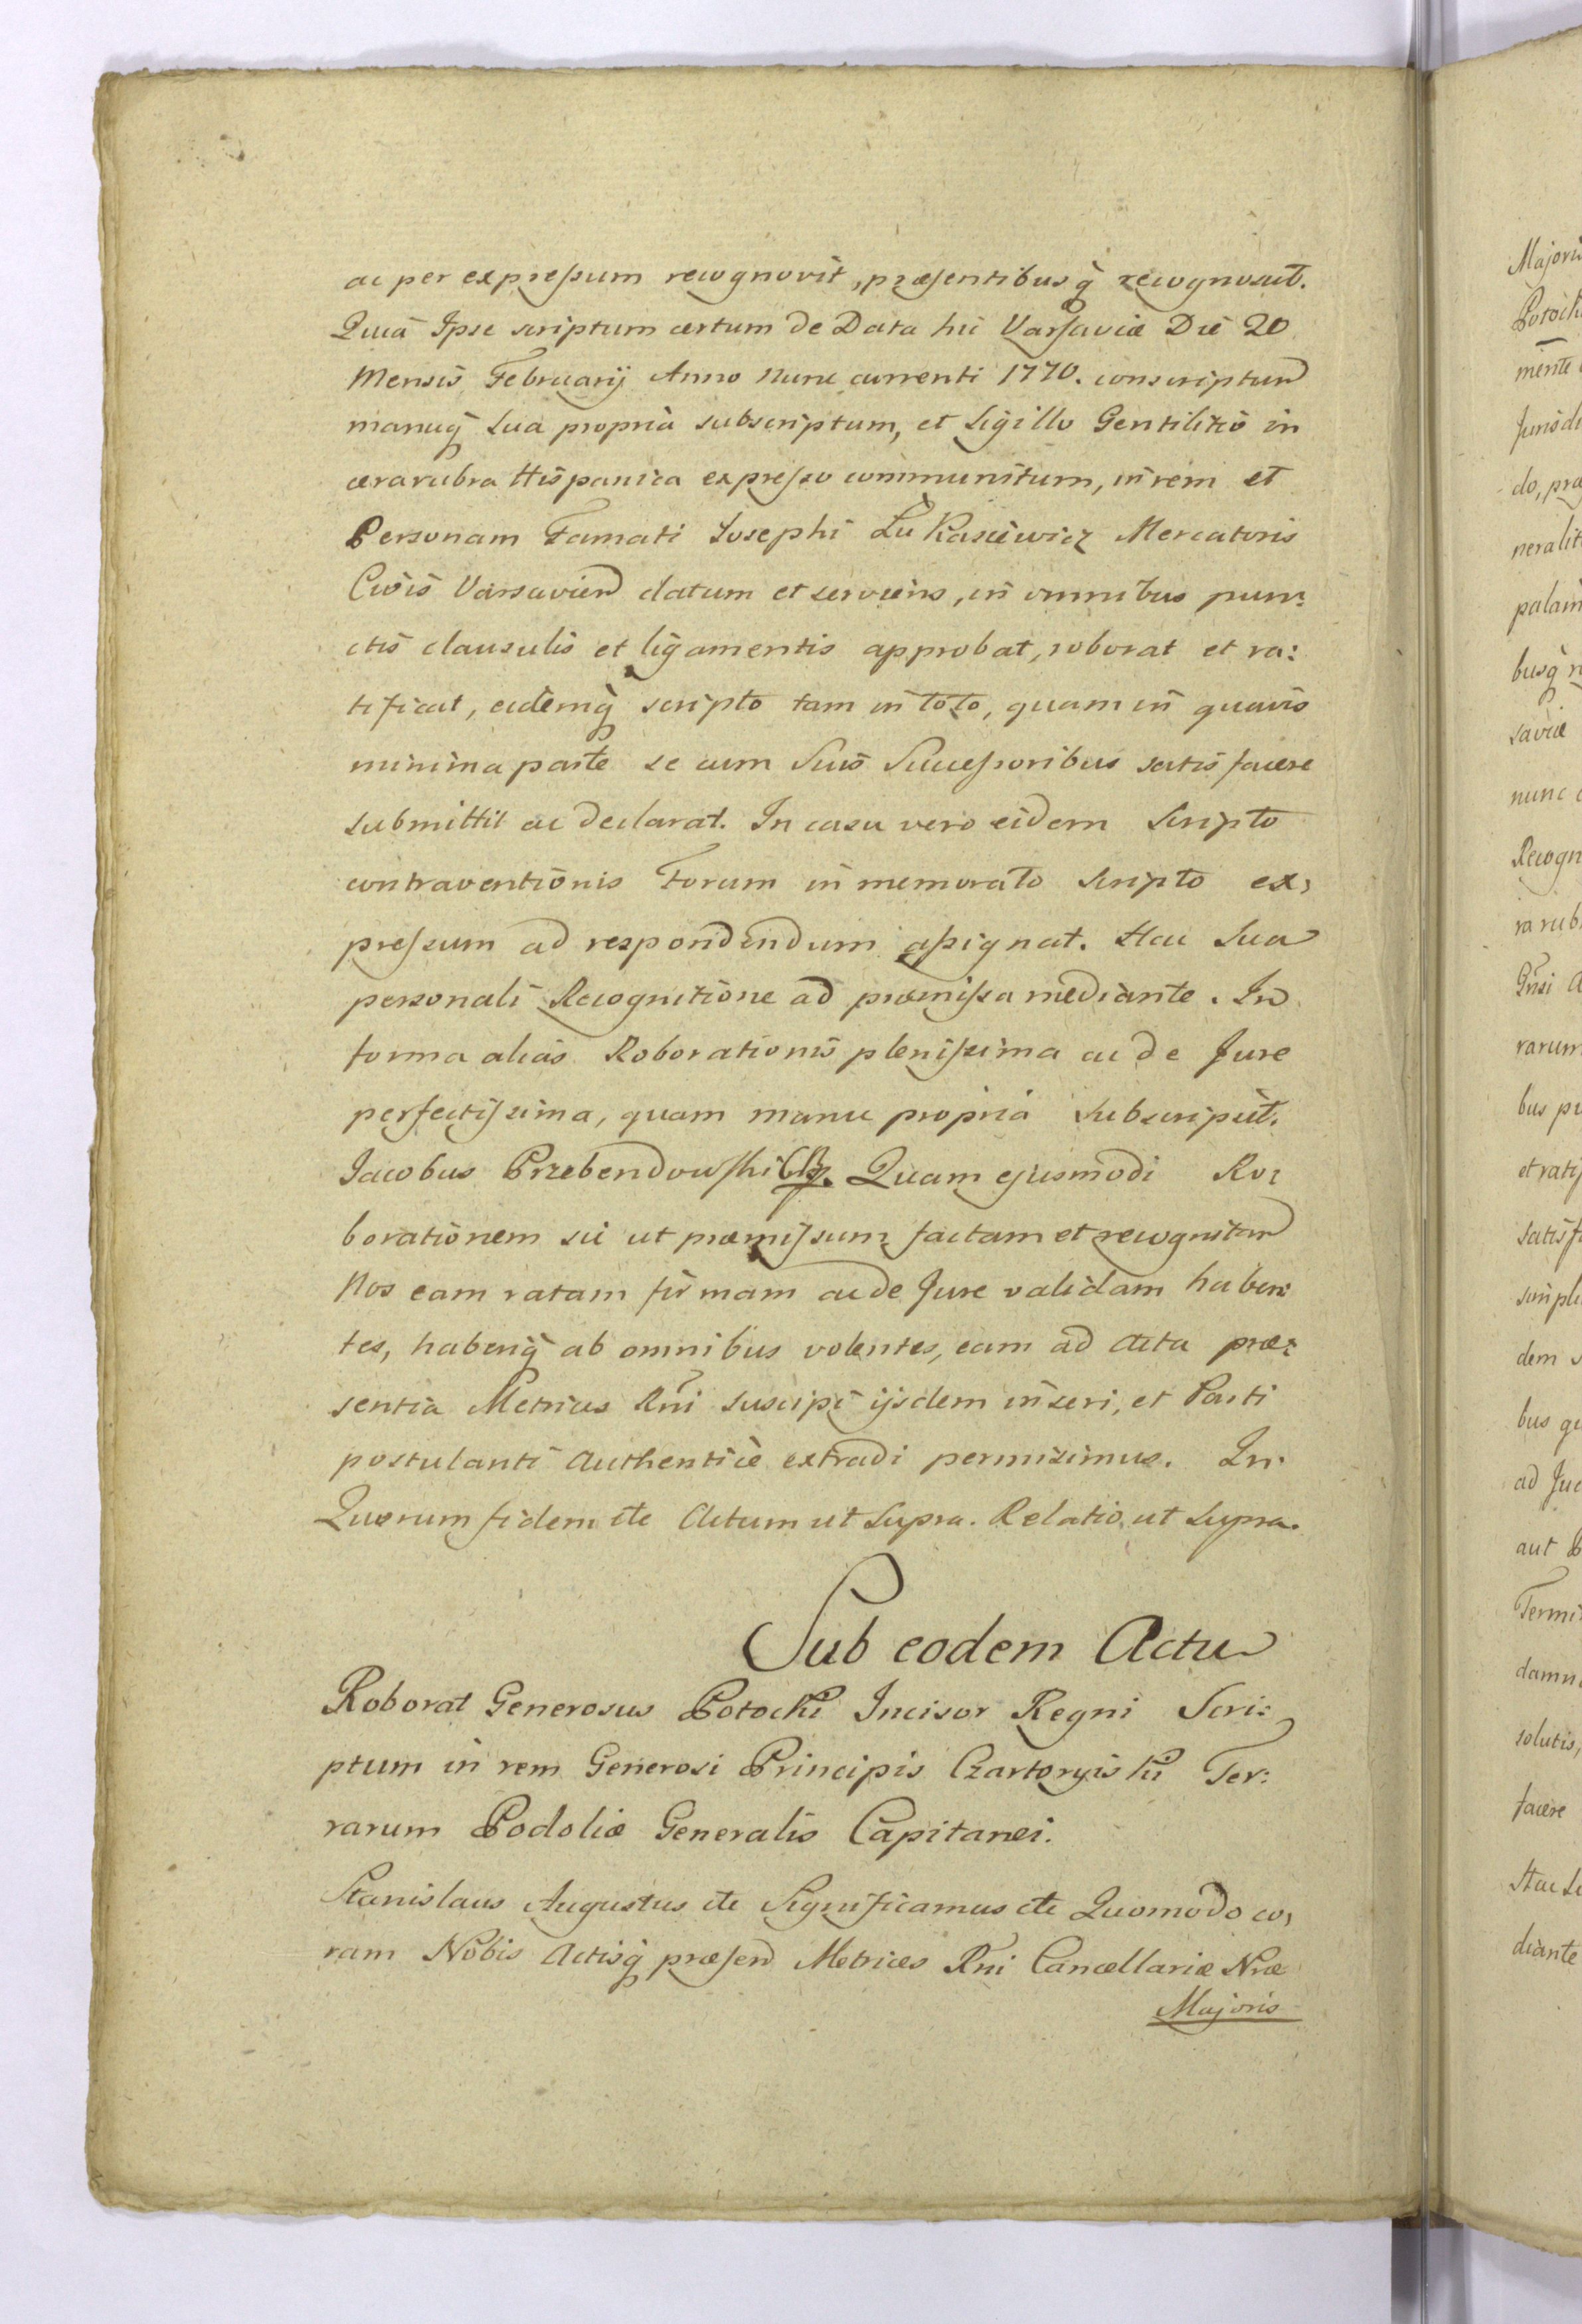 ac per expressum recognovit, præsentibusq̀ recognoscit.
Quia Ipse scriptum certum de Data hic Varsaviæ Die 20
Mensis Februarij Anno nunc currenti 1770. conscriptum
manuq̀ sua propria subscriptum, et Sigillo Gentilitio in
cera rubra Hispanica expresso communitum, in rem et
Personam Famati Josephi Łukasiewicz Mercatoris
Civis Varsavien datum et serviens, in omnibus pun:
ctis clausulis et ligamentis approbat, roborat et ra:
tificat, eidemq̀ scripto tam in toto, quam in quavis
minima parte se cum Suis Successoribus satisfacere
submittit ac declarat. In casu vero eidem Scripto
contraventionis Forum in memorato Scripto ex,
pressum ad respondendum assignat. Hac Sua
personali Recognitione ad præmissa mediante. In
forma alias Roborationis plenissima ac de Jure
perfectissima, quam manu propria subscripsit.
Jacobus Przebendowski Quam ejusmodi Ro:
borationem sic ut præmissum factam et recognitam
Nos eam ratam firmam ac de Jure validam haben:
tes, haberiq̀ ab omnibus volentes, eam ad Acta præ:
sentia Metrices Rni suscipi ijsdem inseri, et Parti
postulanti authenticè extradi permisimus. In
Quorum fidem etc Actum ut Supra. Relatio ut Supra.
Sub eodem Actu
Roborat Generosus Potocki Incisor Regni Scri:
ptum in rem Generosi Principis Czartoryiski Ter:
rarum Podoliæ Generalis Capitanei.
Stanislaus Augustus etc Significamus etc Quomodo co,
ram Nobis Actisq̀ præsen Metrices Rni Cancellariæ Nræ
Majoris
Majoris
nunc
palam
solutis,
facere
diante